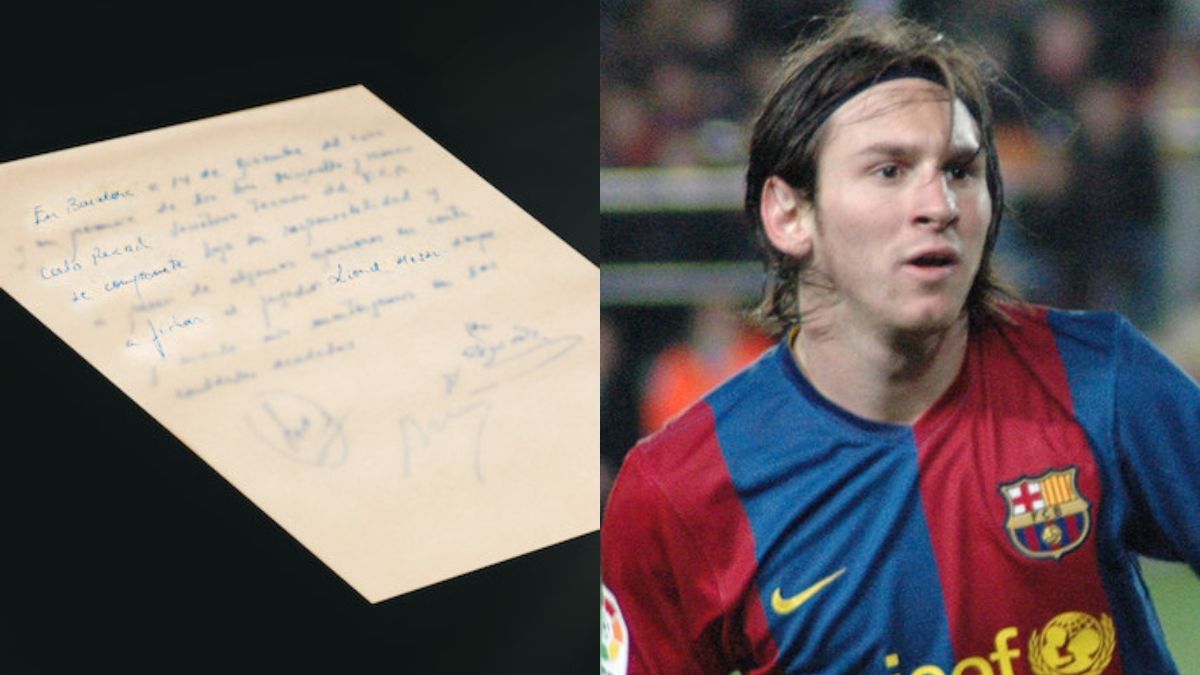 En Barcelona a 14 de Diciembre del
y en presencia de los Minguella y Horacio
Carlos Rexach F.C.B
se compromete bajo su responsabilidad y
a pesar de algunas opiniones en contra
a fichar al jugador Lionel Messi siempre
y cuando nos mantengamos en las
cantidades acordadas
FCB
unicef